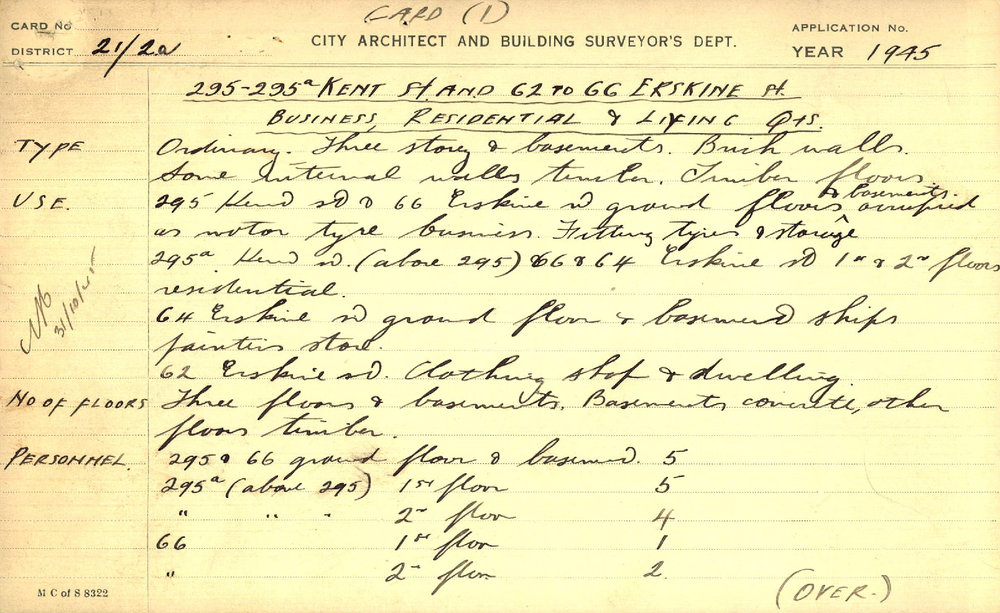 CARD (1)
CARD No
DISTRICT 21/2a
CITY ARCHITECT AND BUILDING SURVEYOR'S DEPT.
APPLICATION No.
YEAR 1945
295-295a KENT St. AND 62 TO 66 ERSKINE St
BUSINESS, RESIDENTIAL & LIVING Qts.
TYPE Ordinary. Three storey & basements. Brick walls.
Some internal walls timber. Timber floors.
USE. 295 Kent st & 66 Erskine st ground floors & basements. occupied
as motor tyre business. Fitting tyres & storage
295a Kent st. (above 295) & 66 & 64 Erskine st 1st & 2nd floors
residential.
64 Erskine st ground floor & basement ships
painters store.
62 Erskine st. Clothing shop & dwelling.
31/10/45
No OF FLOORS Three floors & basements. Basements concrete, other
floors timber.
PERSONNEL. 295 & 66 ground floor & basement. 5
295a (above 295) 1st floor 5
" " " 2nd floor 4
66 1st floor 1
" 2nd floor 2
M C of S 8322
(OVER.)